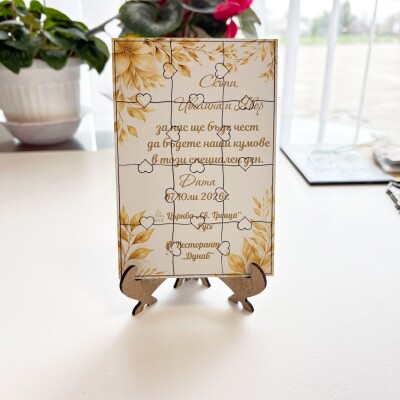 Скъпи,
и Явор
за нас ще бъде чест
да бъдете наши кумове
в този специален ден.
Дата
07 Юли 2026г.
Църква „Св. Троица"
Русе
Ресторант
„Дунав"